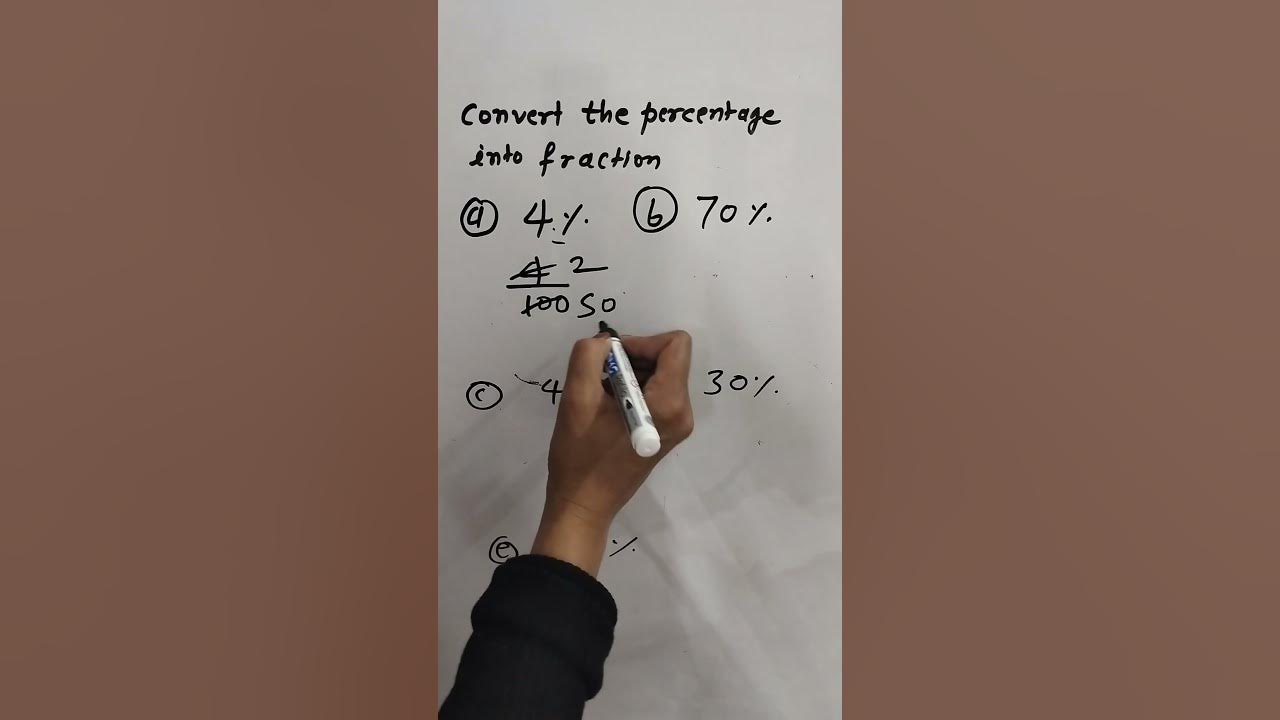 Convert the percentage
into fraction
(a) 4% (b) 70%
4 2
100 50
(c) 4 30%
(e) %